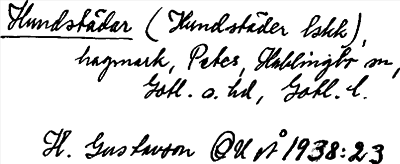 Hundstädar (Hundstäder lskk),
hagmark, Petes, Hablingbo sn,
Gotl. s. hd, Gotl. l.
H. Gustavson OUÅ 1938:23